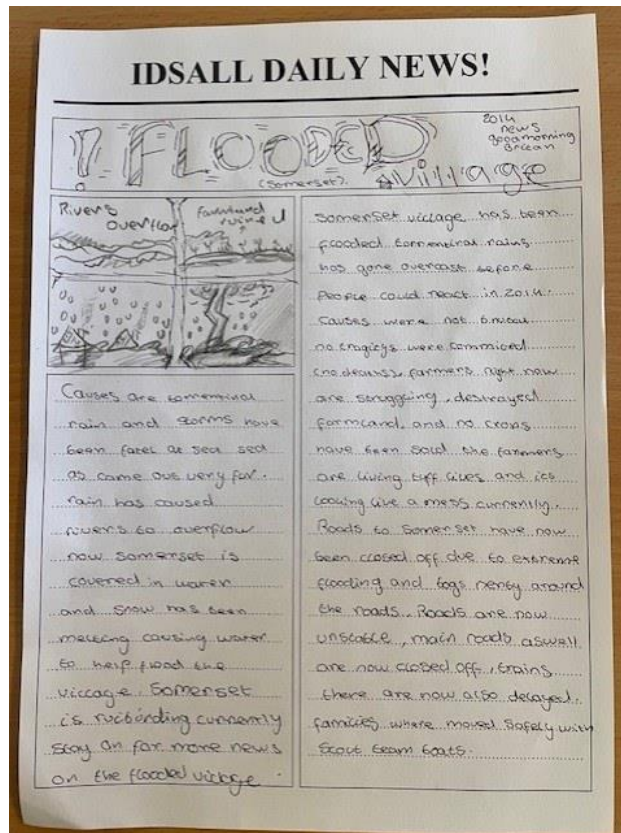 IDSALL DAILY NEWS!
! FLOODED
(Somerset).
Village
2014
news
goodmorning
Rivers
overflow
farmland
ruined
Causes are torrentinal
rain and storms have
been fatel at sea sea
as came out very far.
rain has caused
rivers to overflow
now somerset is
covered in water
and snow has been
melting causing water
to help flood the
village. Somerset
is currently
stay on for more news
on the flooded village.
Somerset village has been
flooded torrentinal rains
has gone overcast before
People could react in 2014.
Causes were not
no were commited
(no deaths), farmers right now
are struggling, destroyed
farmland, and no crops
have been sold the farmers
are living tuff lives and its
looking like a mess currently.
Roads to Somerset have now
been closed off due to extreme
flooding and fogs around
the roads. Roads are now
unstable, main roads aswell
are now closed off, trains
there are now also delayed,
families where moved safely with
scout team boats.